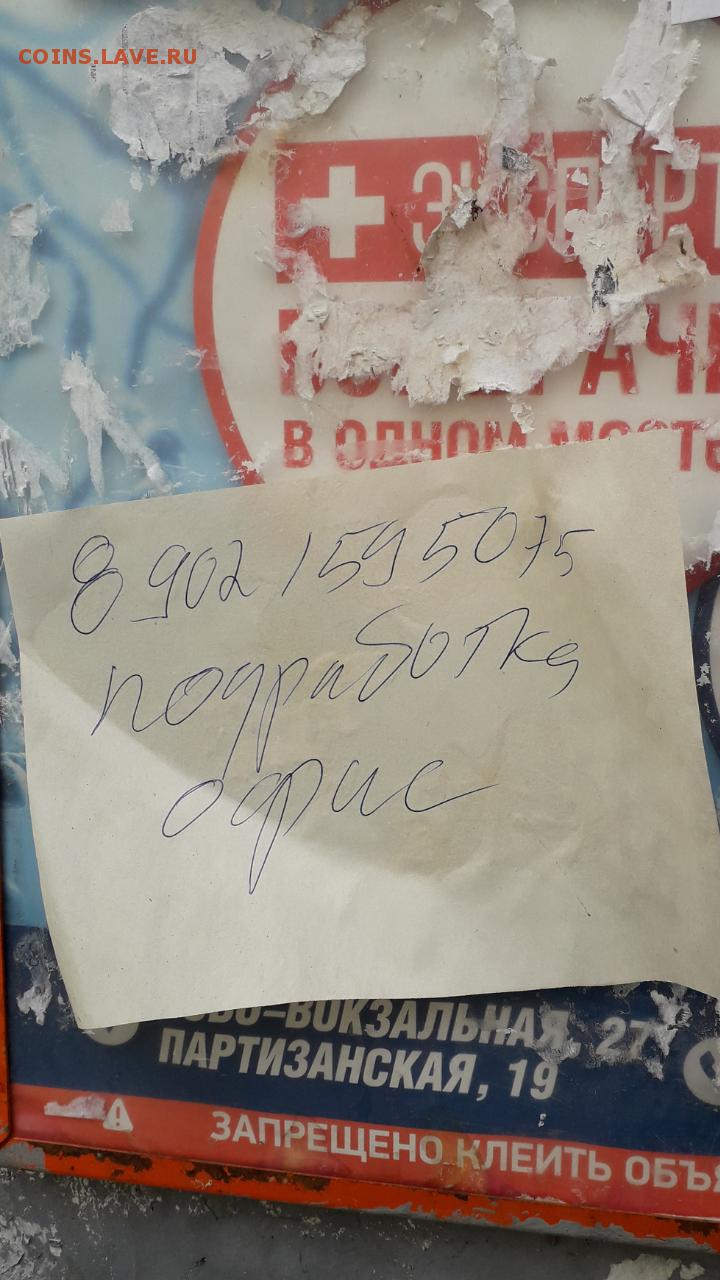 COINS.LAVE.RU
ЭКСПЕРТ
В ОДНОМ МЕСТЕ
8 902 1595075
подработка
офис
-ВОКЗАЛЬНАЯ, 27
ПАРТИЗАНСКАЯ, 19
ЗАПРЕЩЕНО КЛЕИТЬ ОБЪЯ